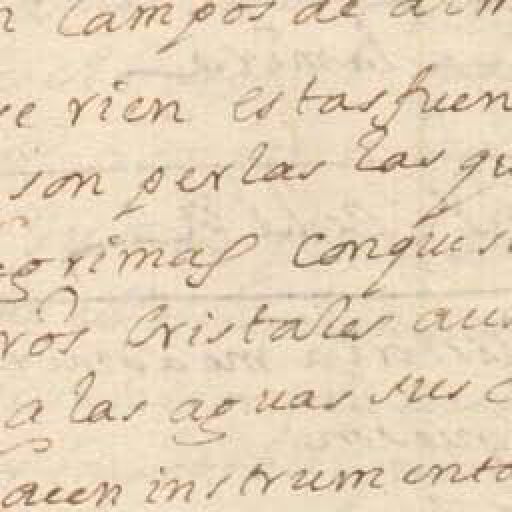 n Campos de
rien estas fuen
son perlas las qu
grimas conque s
ros Cristales aus
a las aguas sus
acen instrumento